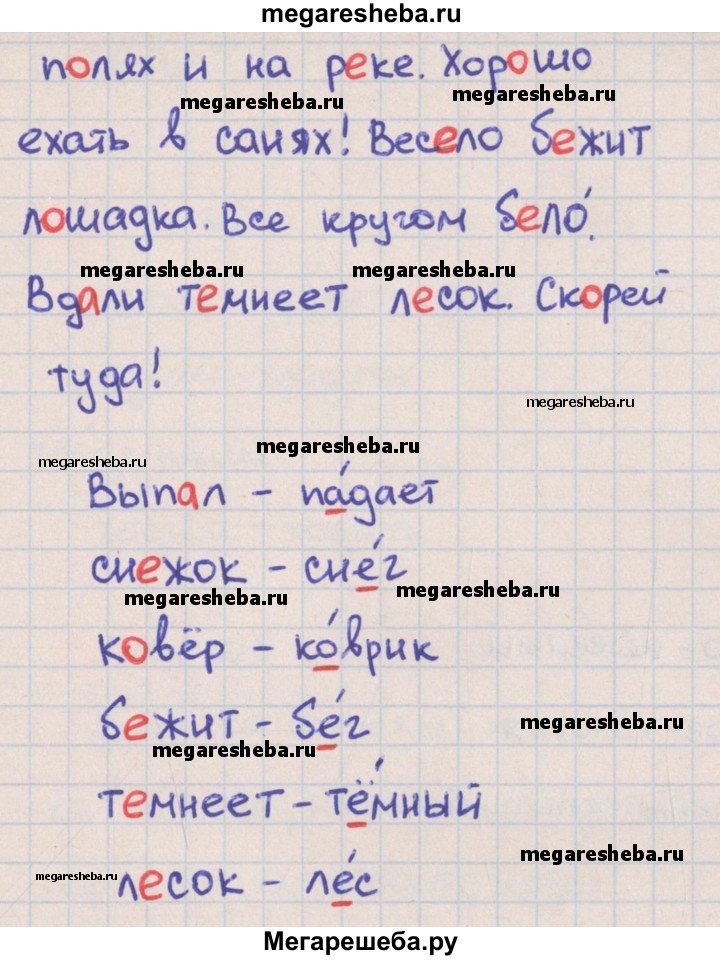 megaresheba.ru
полях и на реке. Хорошо
megaresheba.ru megaresheba.ru
ехать в санях! Весело бежит
лошадка. Все кругом бело́.
megaresheba.ru megaresheba.ru
Вдали темнеет лесок. Скорей
туда!
megaresheba.ru
megaresheba.ru
megaresheba.ru
Выпал - па́дает
снежок - сне́г
megaresheba.ru megaresheba.ru
ковёр - ко́врик
бежит - бе́г
megaresheba.ru
megaresheba.ru
темнеет - тё́мный
megaresheba.ru
megaresheba.ru
лесок - ле́с
Мегарешеба.ру